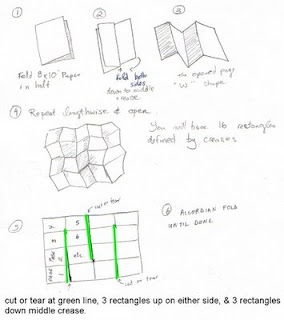 1
Fold 8x10" Paper
in half
2
fold both
sides
down to middle
crease.
3
opened page
"W" shape
4 Repeat lengthwise & open.
You will have 16 rectangles
defined by creases
5
cut or tear
5
6
etc.
cut or tear
6 ACCORDIAN FOLD
UNTIL DONE
cut or tear at green line, 3 rectangles up on either side, & 3 rectangles
down middle crease.